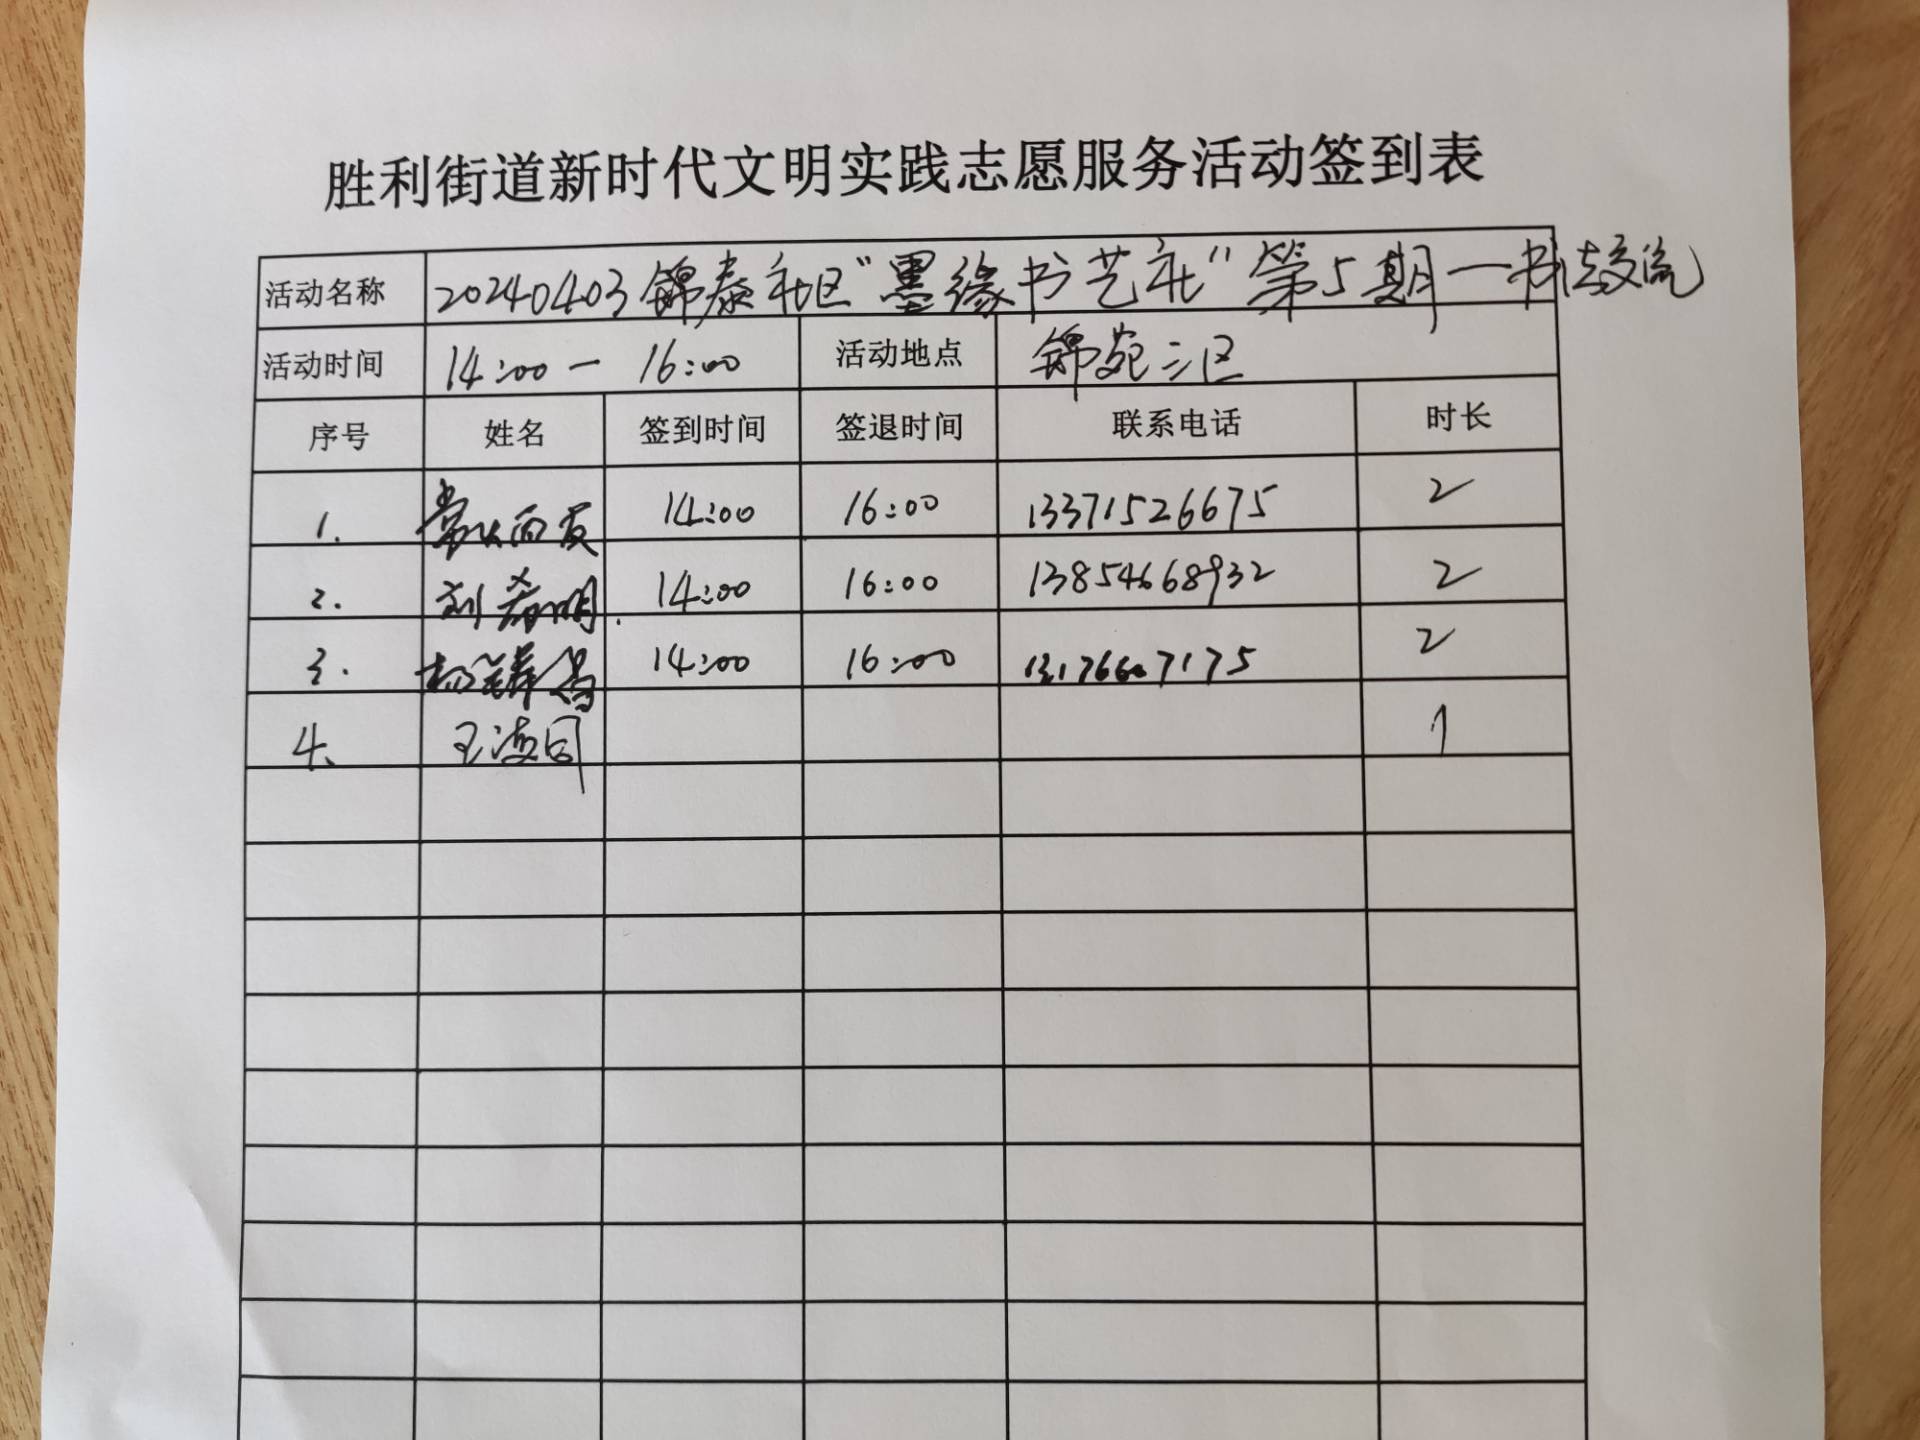 胜利街道新时代文明实践志愿服务活动签到表
活动名称 20240403锦泰社区“墨缘书艺社”第5期—书法交流
活动时间 14:00 — 16:00 活动地点 锦苑三区
序号 姓名 签到时间 签退时间 联系电话 时长
1. 14:00 16:00 13371526675 2
2. 刘希明 14:00 16:00 13854668932 2
3. 14:00 16:00 13176607175 2
4. 1